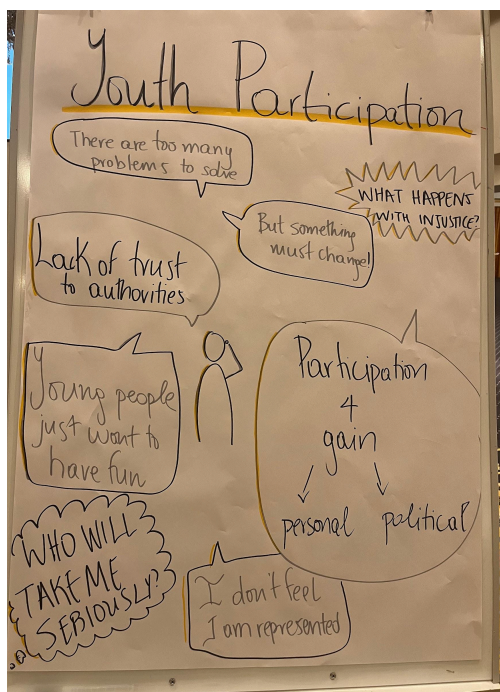 Youth Participation
There are too many
problems to solve
WHAT HAPPENS
WITH INJUSTICE?
But something
must change!
Lack of trust
to authorities
Young people
just want to
have fun
Participation
4
gain
personal political
WHO WILL
TAKE ME
SERIOUSLY?
I don't feel
I am represented